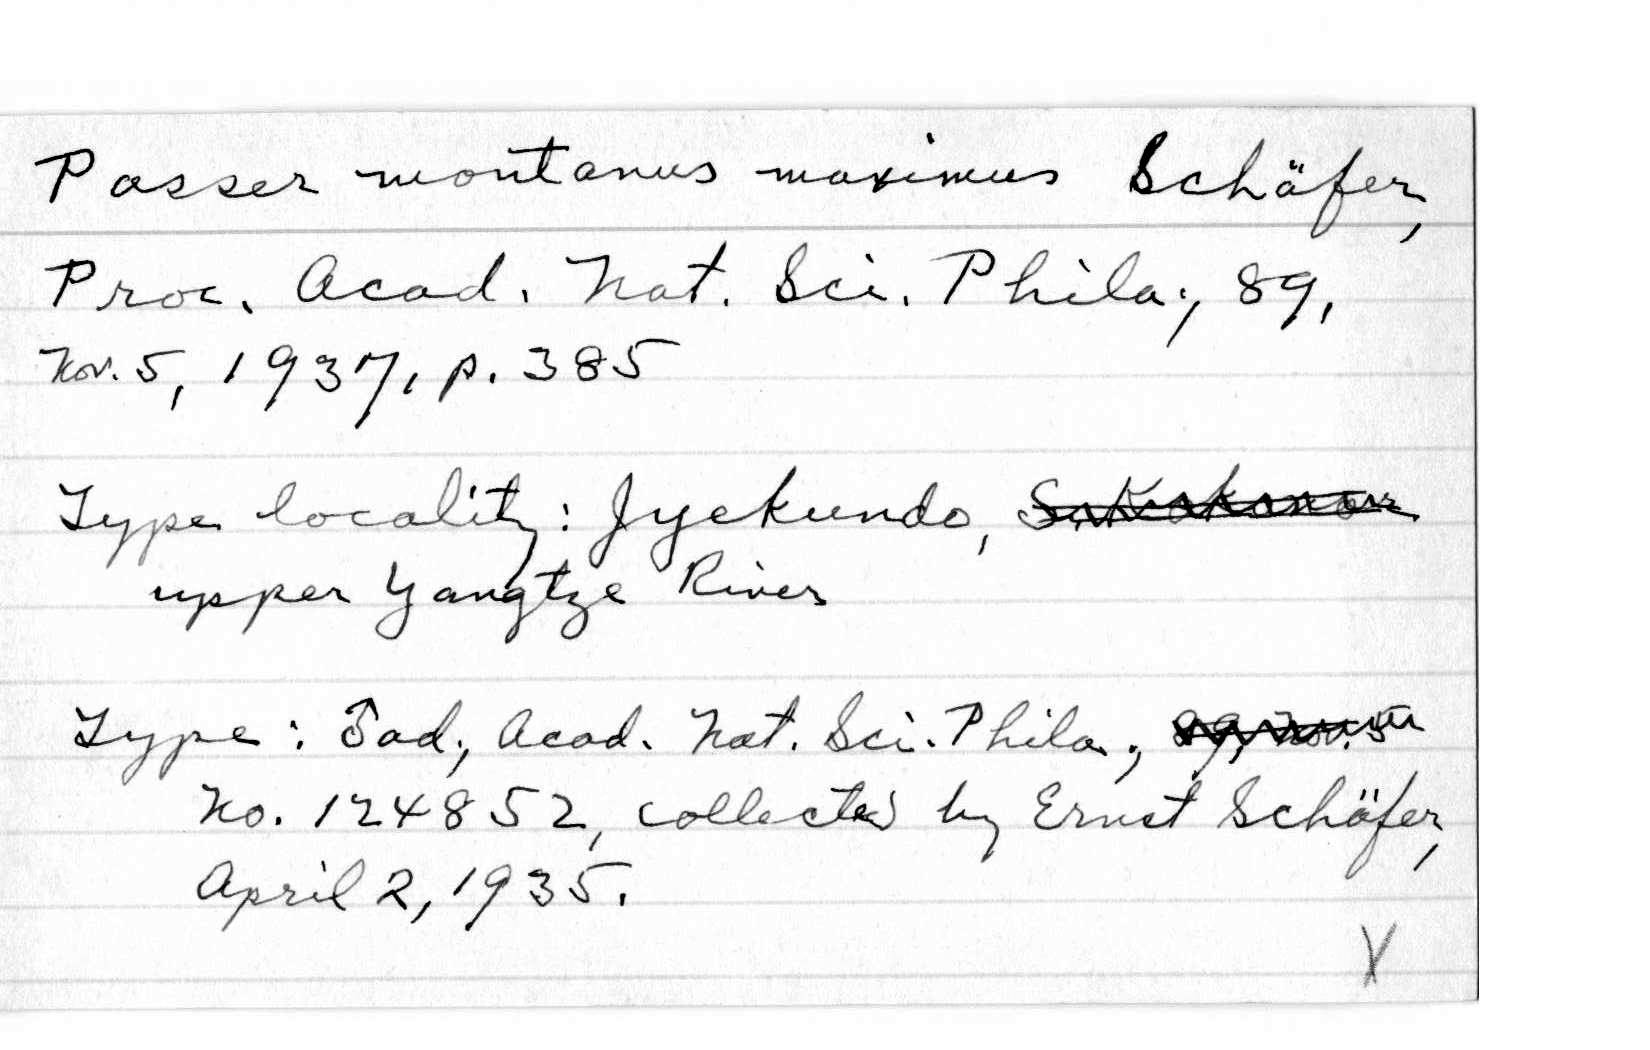 Passer montanus maximus Schäfer,
Proc. Acad. Nat. Sci. Phila., 89,
Nov. 5, 1937, p. 385
Type locality: Jyekundo,
upper Yangtze River
Type: ♂ ad., Acad. Nat. Sci. Phila., 89, Nov. 5
No. 124852, collected by Ernst Schäfer,
April 2, 1935.
X